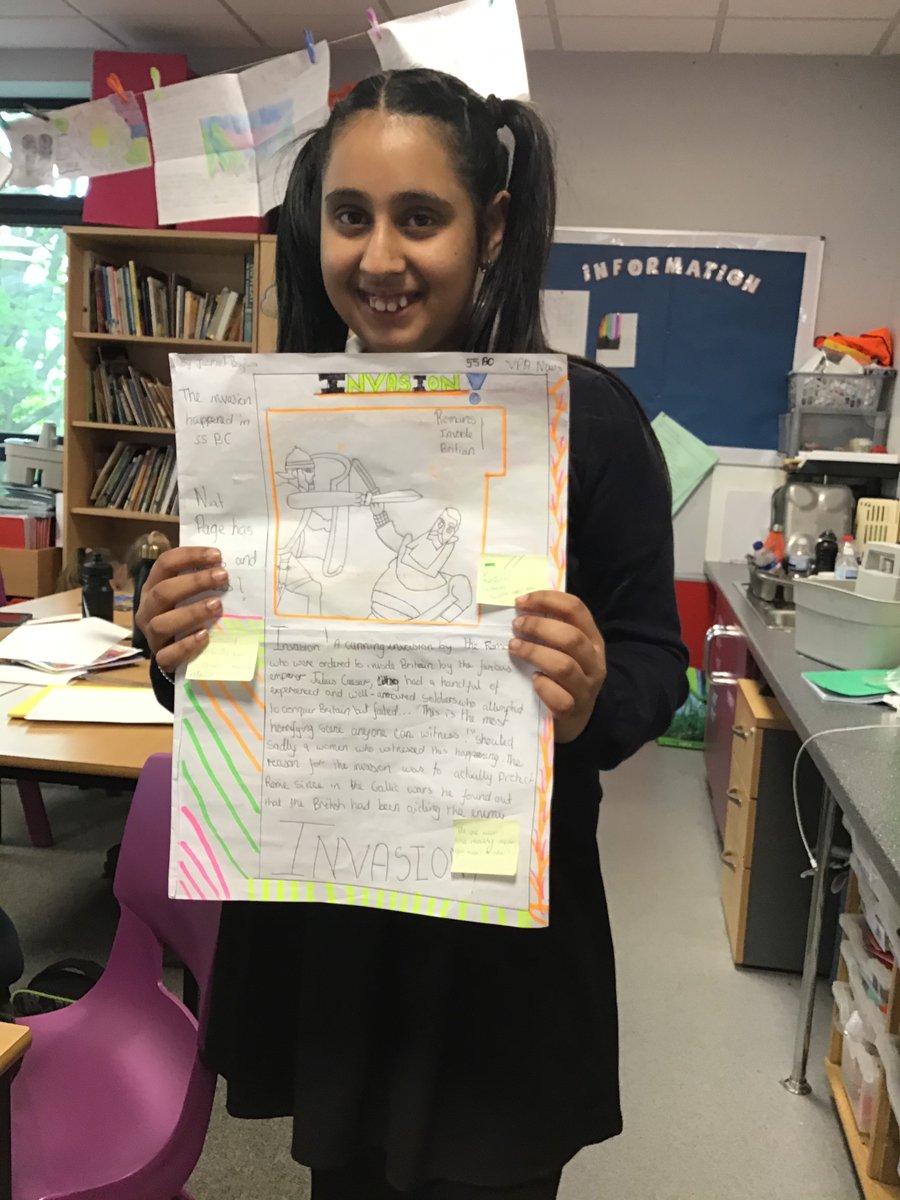 INFORMATION
55 BC VPA News
INVASION!
The invasion
happened in
55 BC
Romans
Invade
Britian
Nat
Page has
and
!
Invasion! A cunning invasion by the
who were ordered to invade Britain by the famous
emperor Julius Caesar, had a handful of
experienced and well-armoured soldiers who attempted
to conquer Britain but failed... "This is the most
horrifying scene anyone can witness!" shouted
Sadly a women who witnessed this happening. The
reason for the invasion was to actually protect
Rome since in the Gallic wars he found out
that the British had been aiding the enemy
INVASION